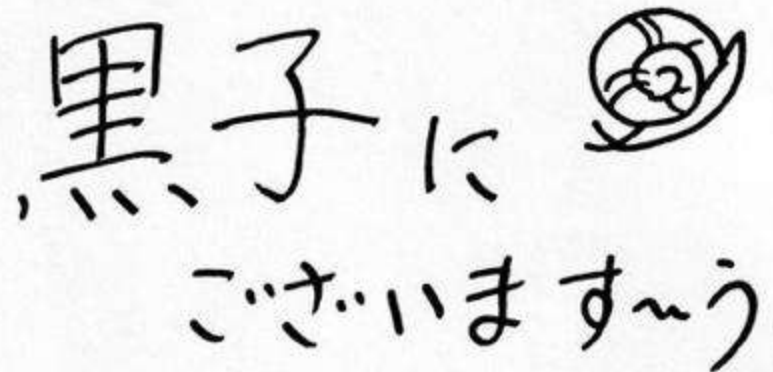 黒子に
ございます~う